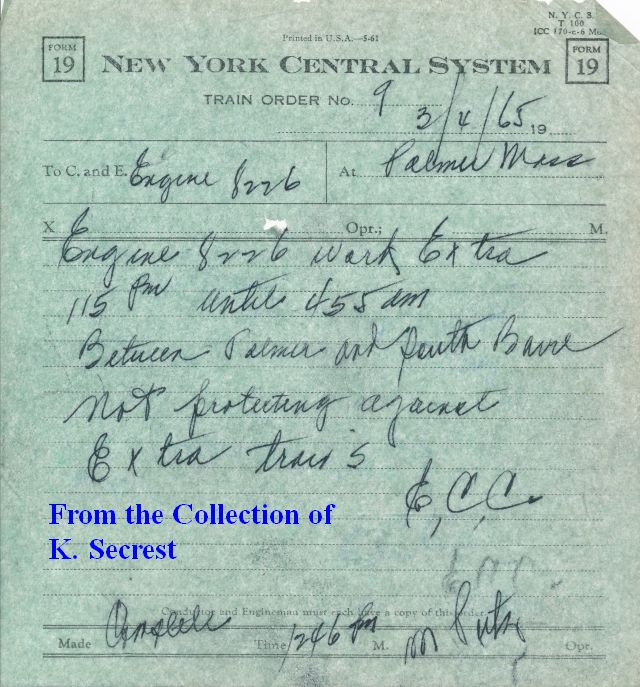 N. Y. C. S.
T 100
Printed in U.S.A.—5-61
ICC 170-c-6 Mo.
FORM 19
NEW YORK CENTRAL SYSTEM
FORM 19
TRAIN ORDER No. 9
3/4/65 19
To C. and E. Engine 8226 At Palmer Mass
X Opr.; M.
Engine 8226 work Extra
115 Pm until 455 am
Between Palmer and South Barre
Not protecting against
Extra trains
E, C, C.
From the Collection of
K. Secrest
Conductor and Engineman must each have a copy of this order.
Made Time 1246 Pm M. Opr.